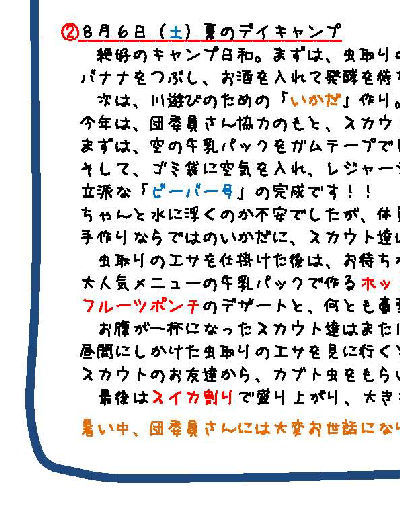 ②８月６日（土）夏のデイキャンプ
絶好のキャンプ日和。まずは、虫取りの
バナナをつぶし、お酒を入れて発酵を待
次は、川遊びのための「いかだ」作り。
今年は、団委員さん協力のもと、スカウ
まずは、空の牛乳パックをガムテープで
そして、ゴミ袋に空気を入れ、レジャー
立派な「ビーバー号」の完成です！！
ちゃんと水に浮くのか不安でしたが、休
手作りならではのいかだに、スカウト達
虫取りのエサを仕掛けた後は、お待ち
大人気メニューの牛乳パックで作るホッ
フルーツポンチのデザートと、何とも
お腹が一杯になったスカウト達はまた
昼間にしかけた虫取りのエサを見に行くと
スカウトのお友達から、カブト虫をもら
最後はスイカ割りで盛り上がり、大き
暑い中、団委員さんには大変お世話にな